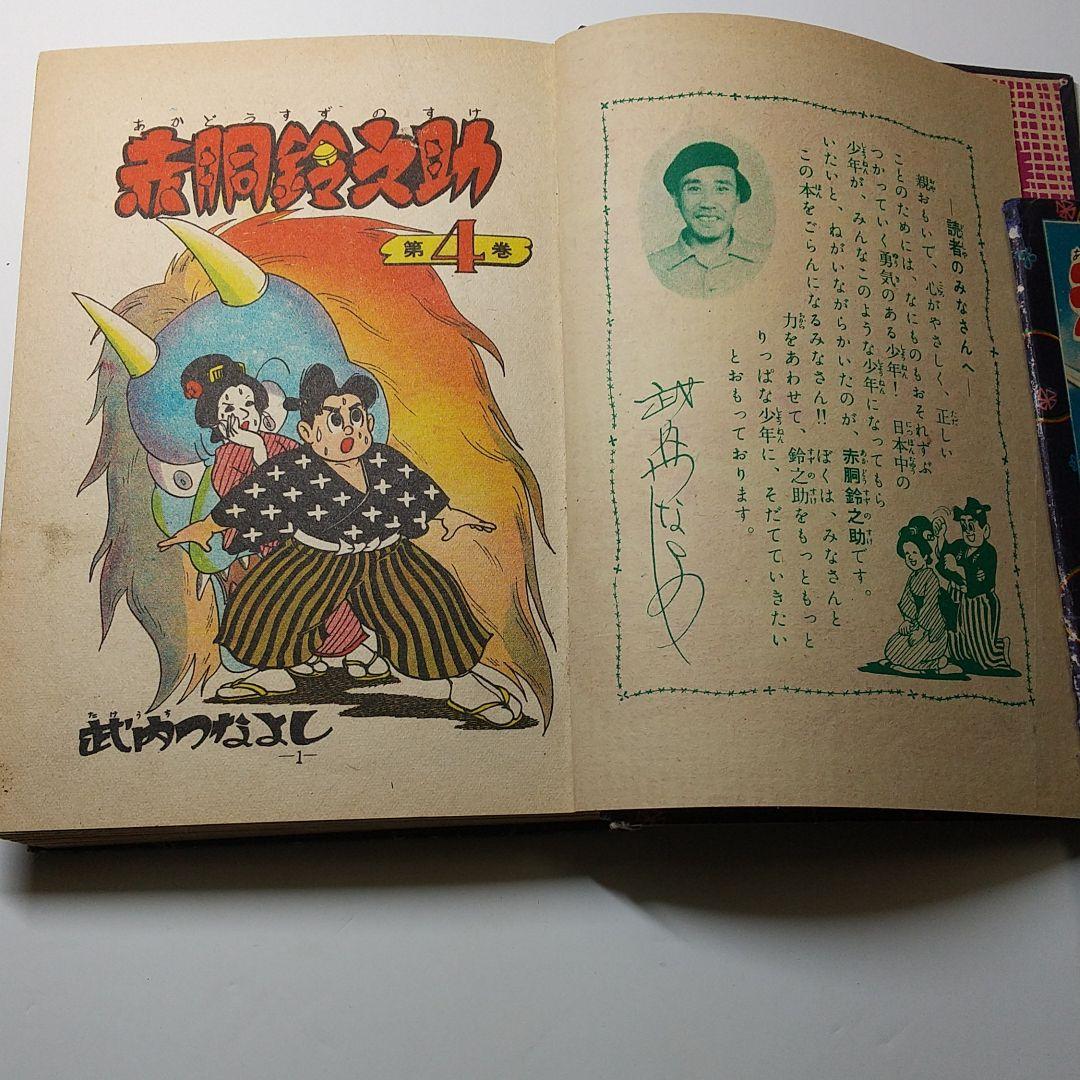 あかどうすずのすけ
赤胴鈴之助
第4巻
たけうち
武内つなよし
—1—
—読者のみなさんへ—
親おもいで、心がやさしく、正しい
ことのためには、なにものもおそれずぶ
つかっていく勇気のある少年！　日本中の
少年が、みんなこのような少年になってもら
いたいと、ねがいながらかいたのが、赤胴鈴之助です。
この本をごらんになるみなさん!!　ぼくは、みなさんと
力をあわせて、鈴之助をもっともっと
りっぱな少年に、そだてていきたい
とおもっております。
武内つなよし